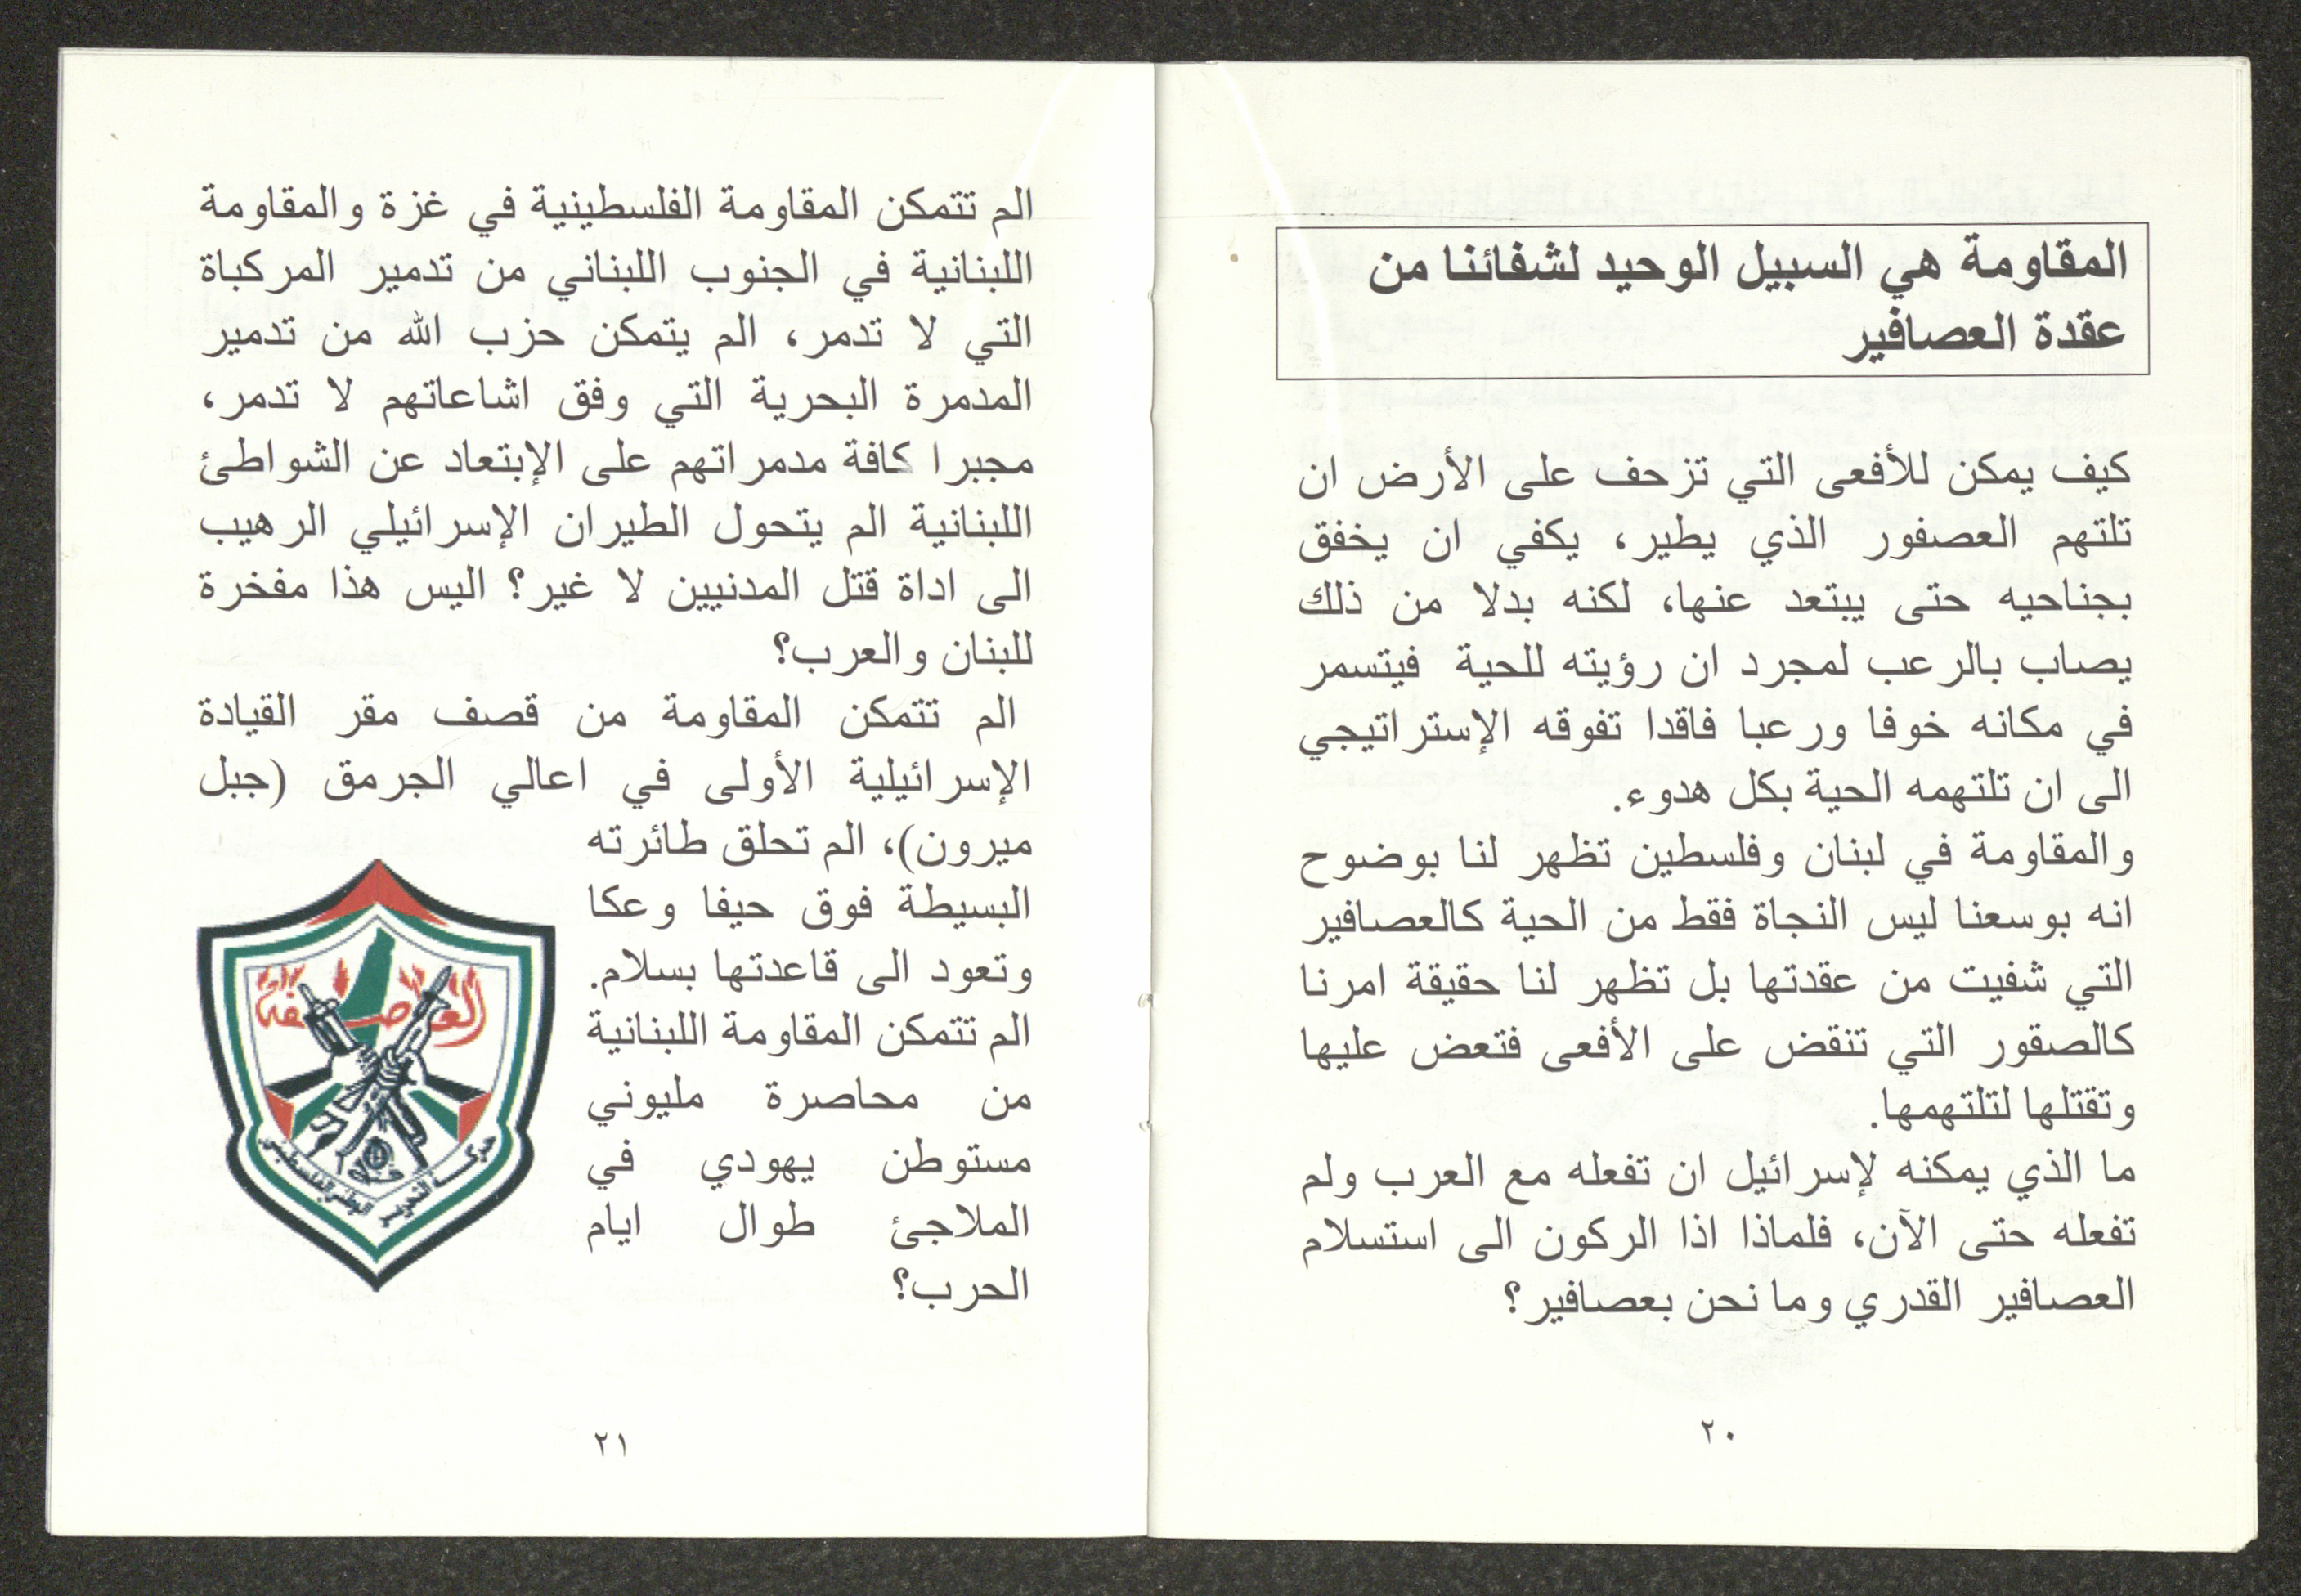 المقاومة هي السبيل الوحيد لشفائنا من
عقدة العصافير
كيف يمكن للأفعى التي تزحف على الأرض ان
تلتهم العصفور الذي يطير، يكفي ان يخفق
بجناحيه حتى يبتعد عنها، لكنه بدلا من ذلك
يصاب بالرعب لمجرد ان رؤيته للحية فيتسمر
في مكانه خوفا ورعبا فاقدا تفوقه الإستراتيجي
الى ان تلتهمه الحية بكل هدوء.
والمقاومة في لبنان وفلسطين تظهر لنا بوضوح
انه بوسعنا ليس النجاة فقط من الحية كالعصافير
التي شفيت من عقدتها بل تظهر لنا حقيقة امرنا
كالصقور التي تنقض على الأفعى فتعض عليها
وتقتلها لتلتهمها.
ما الذي يمكنه لإسرائيل ان تفعله مع العرب ولم
تفعله حتى الآن، فلماذا اذا الركون الى استسلام
العصافير القدري وما نحن بعصافير؟
٢٠
الم تتمكن المقاومة الفلسطينية في غزة والمقاومة
اللبنانية في الجنوب اللبناني من تدمير المركباة
التي لا تدمر، الم يتمكن حزب الله من تدمير
المدمرة البحرية التي وفق اشاعاتهم لا تدمر،
مجبرا كافة مدمراتهم على الإبتعاد عن الشواطئ
اللبنانية الم يتحول الطيران الإسرائيلي الرهيب
الى اداة قتل المدنيين لا غير؟ اليس هذا مفخرة
للبنان والعرب؟
الم تتمكن المقاومة من قصف مقر القيادة
الإسرائيلية الأولى في اعالي الجرمق (جبل
ميرون)، الم تحلق طائرته
البسيطة فوق حيفا وعكا
وتعود الى قاعدتها بسلام.
الم تتمكن المقاومة اللبنانية
من محاصرة مليوني
مستوطن يهودي في
الملاجئ طوال ايام
الحرب؟
العاصفة
فتح
حركة التحرير الوطني الفلسطيني
٢١